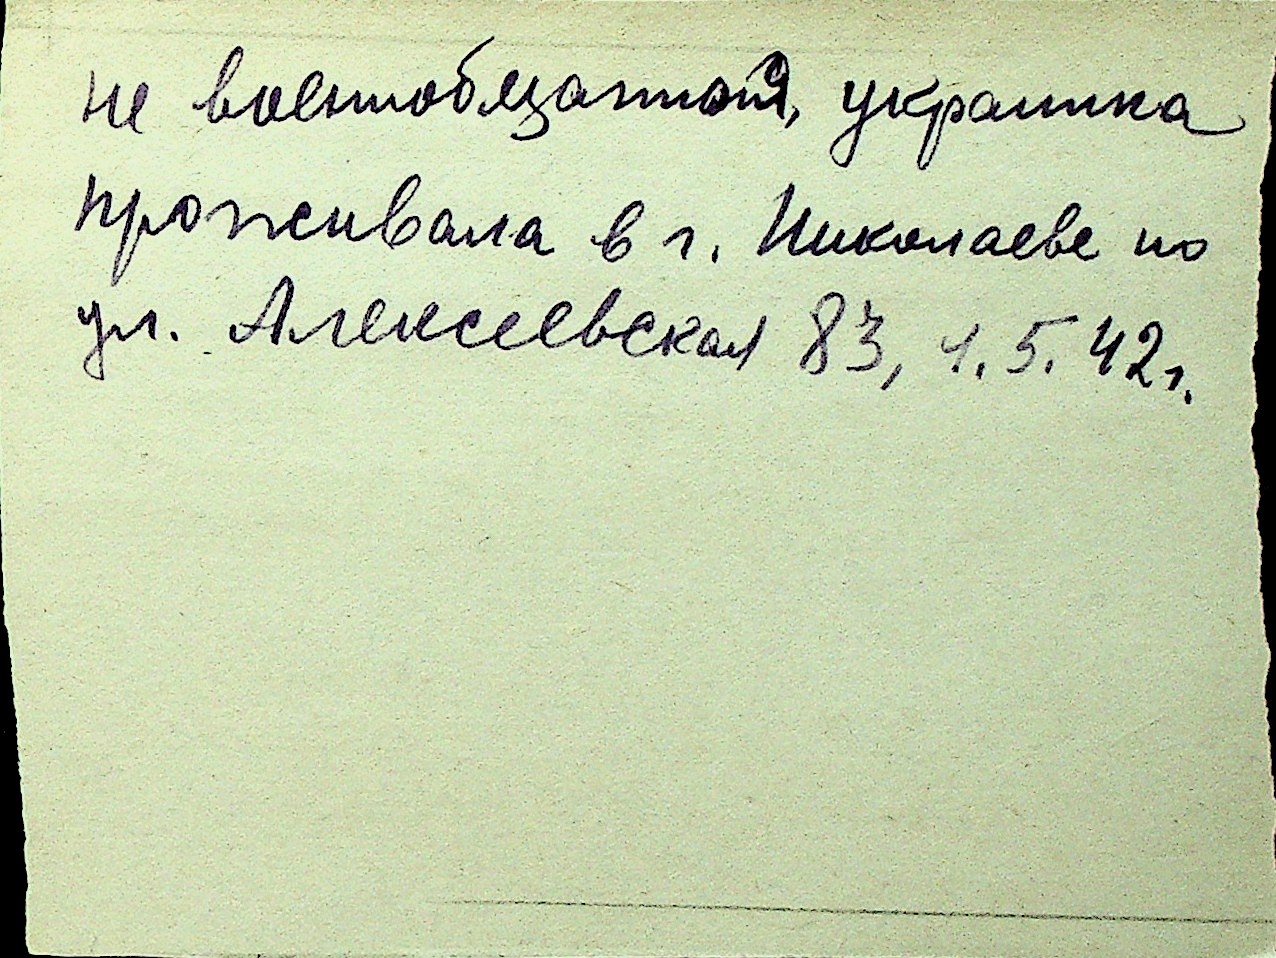 не военнобязаной, украинка
проживала в г. Николаеве по
ул. Алексеевская 83, 1.5.42г.